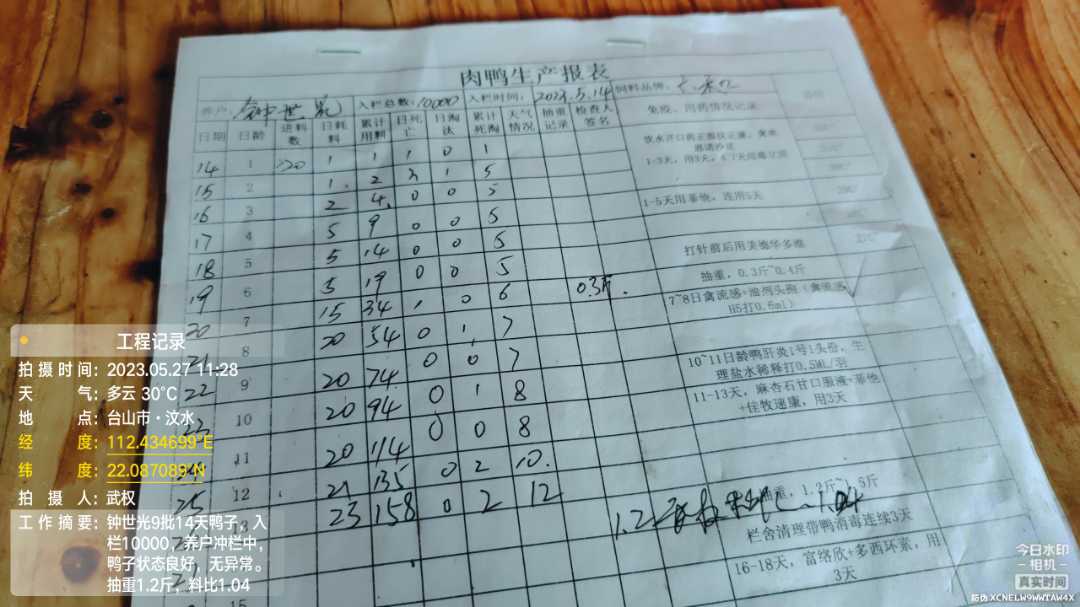 肉鸭生产报表
客户 钟世光 入栏总数: 10000 入栏时间: 2023.5.14 饲料品牌:
日期 日龄 进料数 日耗料 累计用料 日死亡 日淘汰 累计死淘 天气情况 抽重记录 检查人签名 免疫、用药情况记录
14 1 220 1 1 1 0 1
1-3天,用3天,
15 2 1 2 3 1 5
16 3 2 4 0 0 5 1-5天用
,连用5天
17 4 5 9 0 0 5
18 5 5 14 0 0 5 打针前后用美德华多维
19 6 5 19 0 0 5 抽重,0.3斤~0.4斤
20 7 15 34 1 0 6 0.3斤. 7~8日禽流感+油剂头孢(禽流感H5打0.6ml)
21 8 20 54 0 1 7
22 9 20 74 0 0 7 10~11日龄鸭肝炎1号1头份,生理盐水稀释打0.5ML/羽
23 10 20 94 0 1 8 11-13天,麻杏石甘口服液+
+佳牧速康,用3天
11 20 114 0 0 8
24 12 21 135 0 2 10
25 23 158 0 2 12 1.2斤
抽重,1.2斤~1.5斤
栏舍清理带鸭消毒连续3天
16-18天,富络欣+多西环素,用3天
15
工程记录
拍摄时间: 2023.05.27 11:28
天气: 多云 30℃
地点: 台山市·汶水
经度: 112.434699°E
纬度: 22.087089°N
拍摄人: 武权
工作摘要: 钟世光9批14天鸭子,入
栏10000,养户冲栏中,
鸭子状态良好,无异常。
抽重1.2斤,料比1.04
今日水印
-相机-
真实时间
防伪 XCNELW9WWTAW4X